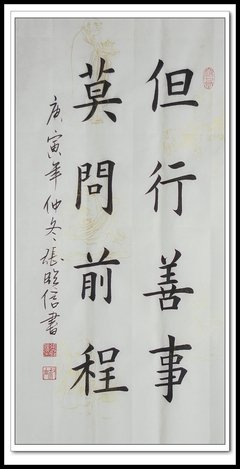 但行善事
莫問前程
庚寅年仲冬張聡信書